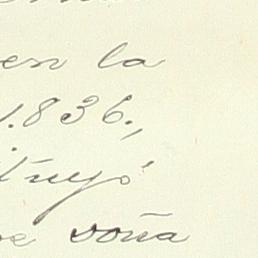 en la
1.836.,
truyó
doña